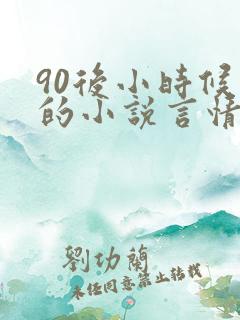 90後小時候
的小說言情
劉功蘭
未經同意禁止轉載